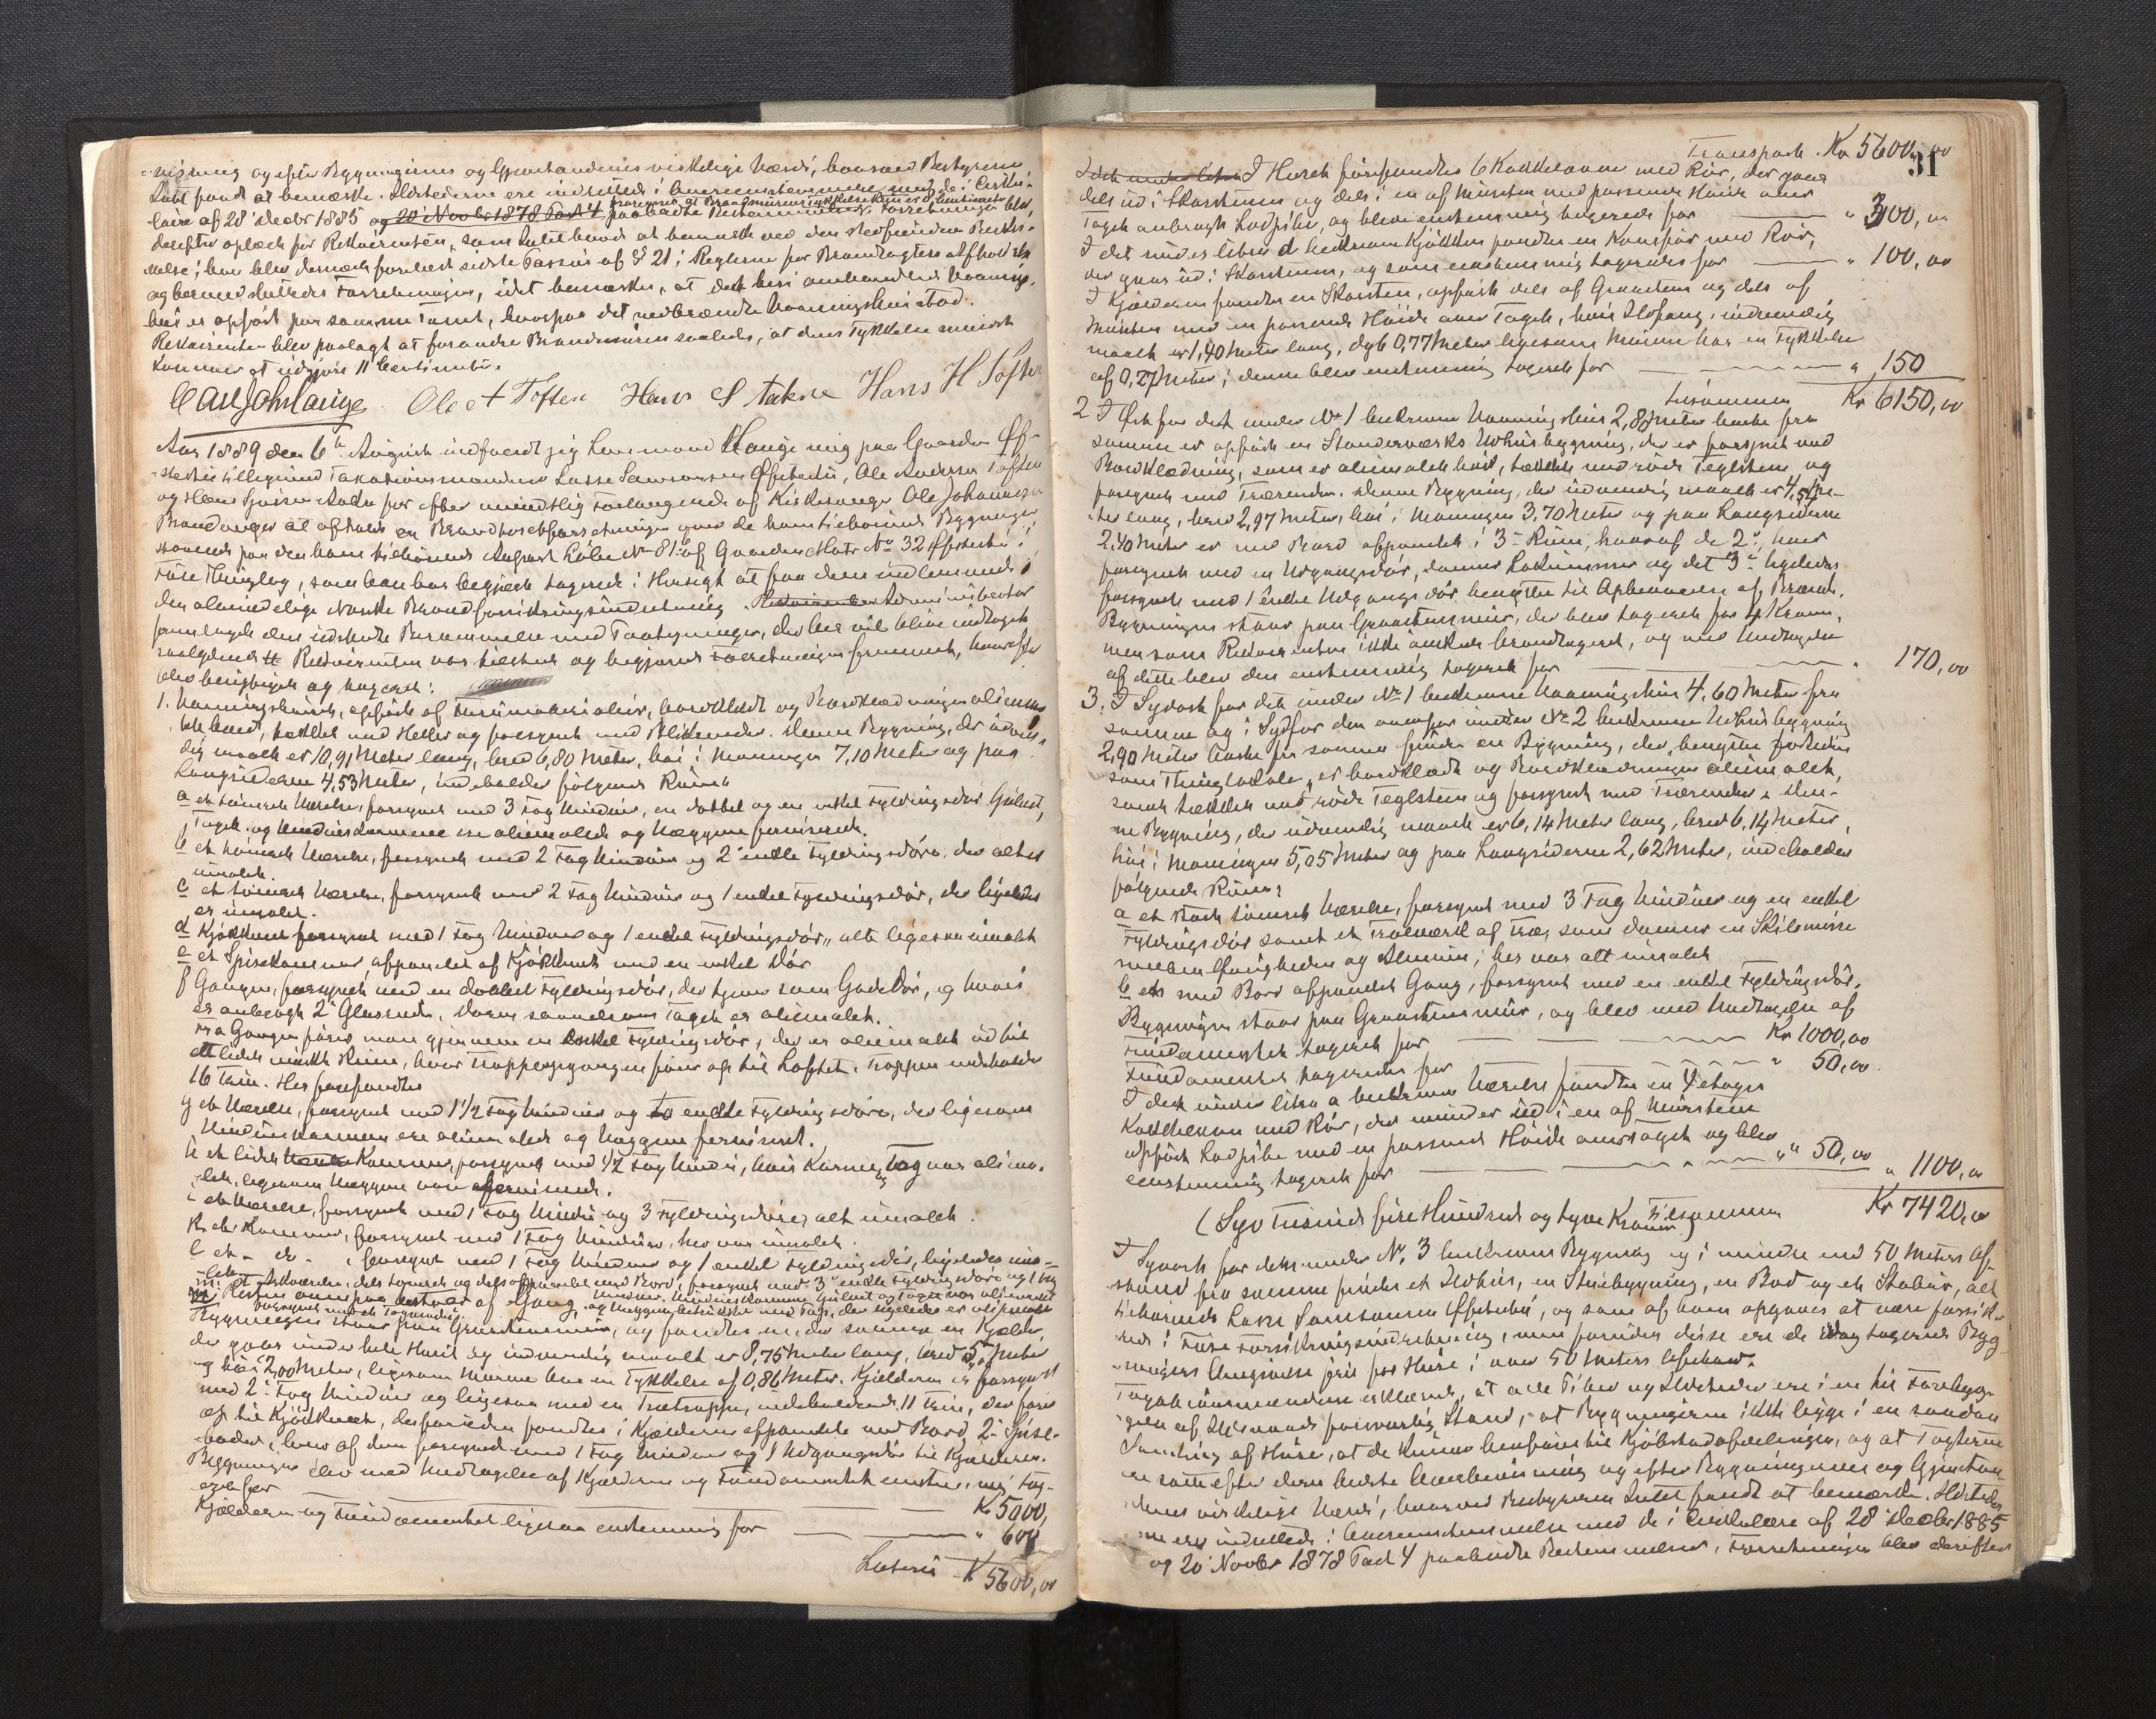 visning og efter Bygningernes og Gjenstandenes virkelige Værdi, hvorved Bestyreren
Intet fandt at bemærke. Ildstederne ere indrettede i Overensstemmelse med de i Cirku-
laire af 28 Decbr 1885 og 20 Novbr 1878 Post 4 paabudte Bestemmelser. Forretningen blev
derefter oplæst for Rekvirenten, som Intet havde at bemærke ved den stedfundne Beskri-
velse; han blev dernæst foreholdt sidste Passus af § 21 i Reglerne for Brandtagters Afholdelse
og hermed sluttedes Forretningen, idet bemærkes, at det heri omhandlede Vaanings-
hus er opført paa samme Tomt, hvorpaa det nedbrændte Vaaningshus stod.
Rekvirenten blev paalagt at forandre Brandmuren saaledes, at dens Tykkelse mindst
kommer at udgjøre 11 Centimeter.
Carl Joh Lauge Ole A Toften Hans S Hans H Toften
Aar 1889 den 6te August indfandt jeg Lensmand Hauge mig paa Gaarden Øf-
stedtu tilligemed Taxationsmændene Lasse Samsonsen Øfstedtu, Ole Andersen Toften
og Hans for efter mundtlig Forlangende af Kirkesanger Ole Johannesen
Brandanger at afholde en Brandtaxtforretning over de ham tilhørende Bygninger
staaende paa den ham tilhørende Løbe No 81 af Gaarden Matr No 32 Øfstedtu i
Fuse Thinglag, som han har begjært taxerede i Hensigt at faa dem indlemmede i
den almindelige Norske Brandforsikringsindretning. Rekvirenten Administrator
fremlagde den udstedte Berammelse med Paategninger, der her vil blive indtaget
saalydende # Rekvirenten var tilstede og begjærede Forretningen fremmet, hvorefter
blev besigtiget og taxeret:
1. Vaaningshuset, opført af Tømmermaterialier, bordklædt og Bordklædningen oliema-
let, tækket med Heller og forsynet med Blikrender. Denne Bygning, der udven-
dig maalt er 10,91 Meter lang, bred 6,80 Meter, høi i Mønningen 7,10 Meter og paa
Langsiderne 4,53 Meter, indeholder følgende Rum:
a et tømret Værelse, forsynet med 3 Fag Vinduer, en dobbel og en enkel Fyldingsdør. Gulvet,
Taget og Vindueskarmene ere oliemalede og Væggene ferniserede.
b et tømret Værelse, forsynet med 2 Fag Vinduer og 2 enkle Fyldingsdøre, der alt er
umalet.
c et tømret Værelse, forsynet med 2 Fag Vinduer og 1 enkel Fyldingsdør, der ligeledes
er umalet.
d Kjøkkenet forsynet med 1 Fag Vinduer og 1 enkel Fyldingsdør, alt ligesaa umalet
e et Spisekammer afpanelet af Kjøkkenet med en enkel Dør
f Gangen, forsynet med en dobbel Fyldingsdør, der tjener som Gadedør, og hvori
er anbragt 2 Glasruder, Døren saavelsom Taget er oliemalet.
Fra Gangen føres man gjennem en enkel Fyldingsdør, der er oliemalet ud til
et lidet mørkt Rum, hvor Trappegangen fører op til Loftet. Trappen indeholder
16 Trin. Her forefandtes
g et Værelse, forsynet med 1 1/2 Fag Vinduer og to enkle Fyldingsdøre, der ligesom
Vindueskarmene ere oliemalede og Væggene ferniseret.
h et lidet Værelse Kammer, forsynet med 1/2 Fag Vindu, hvis Karme og Tag var oliema-
let, ligesom Væggene var ferniseret.
i et Værelse, forsynet med 1 Fag Vindu og 3 Fyldingsdøre, alt umalet.
k et Kammer, forsynet med 1 Fag Vinduer, her var umalet.
l et - do -, forsynet med 1 Fag Vinduer og 1 enkel Fyldingsdør, ligeledes uma-
let.
Bygningen staar paa Graastensmur, og fandtes under samme en Kjelder,
der gaar under hele Huset og indvendig maalt er 8,75 Meter lang, bred Meter
og høi 2,00 Meter, ligesom Murene har en Tykkelse af 0,86 Meter. Kjælderen er forsynet
med 2 Fag Vinduer og ligesaa med en Trætrappe, indeholdende 11 Trin, der fører
op til Kjøkkenet, desforuden fandtes i Kjælderen afpanelet med Bord, 2 Spise-
boder, hver af dem forsynede med 1 Fag Vinduer og 1 Udgangsdør til Kjælderen.
Bygningen blev med Undtagelse af Kjælderen og Fundamentet enstemmig tax-
eret for Kr 5000,
Kjælderen og Fundamentet ligesaa enstemmig for " 600
Lateris K 5600,00
31
Transport. Kr 5600,00
I Huset forefandtes 6 Kakkelovne med Rør, der gaar
dels ud i Skorstenen og dels i en af Mursten med passende Høide over
Taget anbragt Lodpibe, og bleve enstemmig taxerede for " 300,00
I det under litra d benævnte Kjøkken fandtes en Komfur med Rør,
der gaar ud i Skorstenen, og som enstemmig taxeredes for " 100,00
I Kjælderen fandtes en Skorsten, opført dels af Graasten og dels af
Mursten med en passende Høide over Taget, hvis Ildfang, indvendig
maalt er 1,40 Meter lang, dyb 0,77 Meter ligesom Murene har en Tykkelse
af 0,27 Meter; denne blev enstemmig taxeret for " 150
Tilsammen Kr 6150,00
2 I Øst for det under No 1 benævnte Vaaningshus 2,80 Meter borte fra
samme er opført en Stænderværks Udhusbygning, der er forsynet med
Bordklædning, som er oliemalet hvid, tækket med røde Teglstene og
forsynet med Trærender. Denne Bygning, der udvendig maalt er 4,54 Me-
ter lang, bred 2,97 Meter, høi i Mønningen 3,70 Meter og paa Langsiderne
2,40 Meter er med Bord afpanelet i 3 Rum, hvoraf de 2, hver
forsynet med en Udgangsdør, danner Latrinerne og det 3 ligeledes
forsynet med 1 enkel Udgangsdør benyttes til Opbevarelse af Brænde.
Bygningen staar paa Graastensmur, der blev taxeret for 4 Kroner,
men som Rekvirenten ikke ønskede brandtaxeret, og med Undtagelse
af dette blev den enstemmig taxeret for " 170,00
3. I Sydost for det under No 1 benævnte Vaaningshus 4,60 Meter fra
samme og i Syd for den ovenfor under No 2 benævnte Udhusbygning
2,90 Meter borte fra samme findes en Bygning, der benyttes fortiden
som Thinglokale, er bordklædt og Bordklædningen oliemalet,
samt tækket med røde Teglsten og forsynet med Trærender. Den-
ne Bygning, der udvendig maalt er 6,14 Meter lang, bred 6,14 Meter,
høi i Mønningen 5,05 Meter og paa Langsiderne 2,62 Meter, indeholder
følgende Rum:
a et stort tømret Værelse, forsynet med 3 Fag Vinduer og en enkel
Fyldingsdør samt et Tralværk af Træ, som danner en Skillemur
mellem Øvrigheden og Almuen; her var alt umalet
b et med Bord afpanelet Gang, forsynet med en enkel Fyldingsdør.
Bygningen staar paa Graastensmur, og blev med Undtagelse af
Fundamentet taxeret for Kr 1000,00
Fundamentet taxeredes for " 50,00
I det under litra a benævnte Værelse fandtes en 4 etages
Kakkelovn med Rør, der munder ud i en af Mursten
opført Lodpibe med en passende Høide over Taget og blev
enstemmig taxeret for " 50,00 " 1100,00
Tilsammen Kr 7420,00
(Syv Tusinde fire Hundrede og tyve Kroner)
I Syvost for den under No. 3 benævnte Bygning og i mindre end 50 Meters Af-
stand fra samme findes et Ildhus, en Stuebygning, en Bod og et Stabur, alt
tilhørende Lasse Samsonsen Øfstedtu, og som af ham opgaves at være forsik-
ret i Fuse Forsikringsindretning, men foruden disse ere de idag taxerede Byg-
ningers Omgivelse fri for Huse i over 50 Meters Afstand.
Taxationsmændene erklærede, at alle Piber og Ildsteder ere i en til Forebyg-
gelse af Ildsvaade forsvarlig Stand, at Bygningerne ikke ligge i en saadan
Samling af Huse, at de kunne henføres til Kjøbstadafdelingen, og at Taxterne
ere satte efter deres bedste Overbevisning og efter Bygningernes og Gjenstan-
denes virkelige Værdi, hvorved Bestyreren Intet fandt at bemærke. Ildsteder-
ne ere indrettede i Overensstemmelse med de i Cirkulære af 28 Decbr 1885
og 20 Novbr 1878 Post 4 paabudte Bestemmelser. Forretningen blev derefter